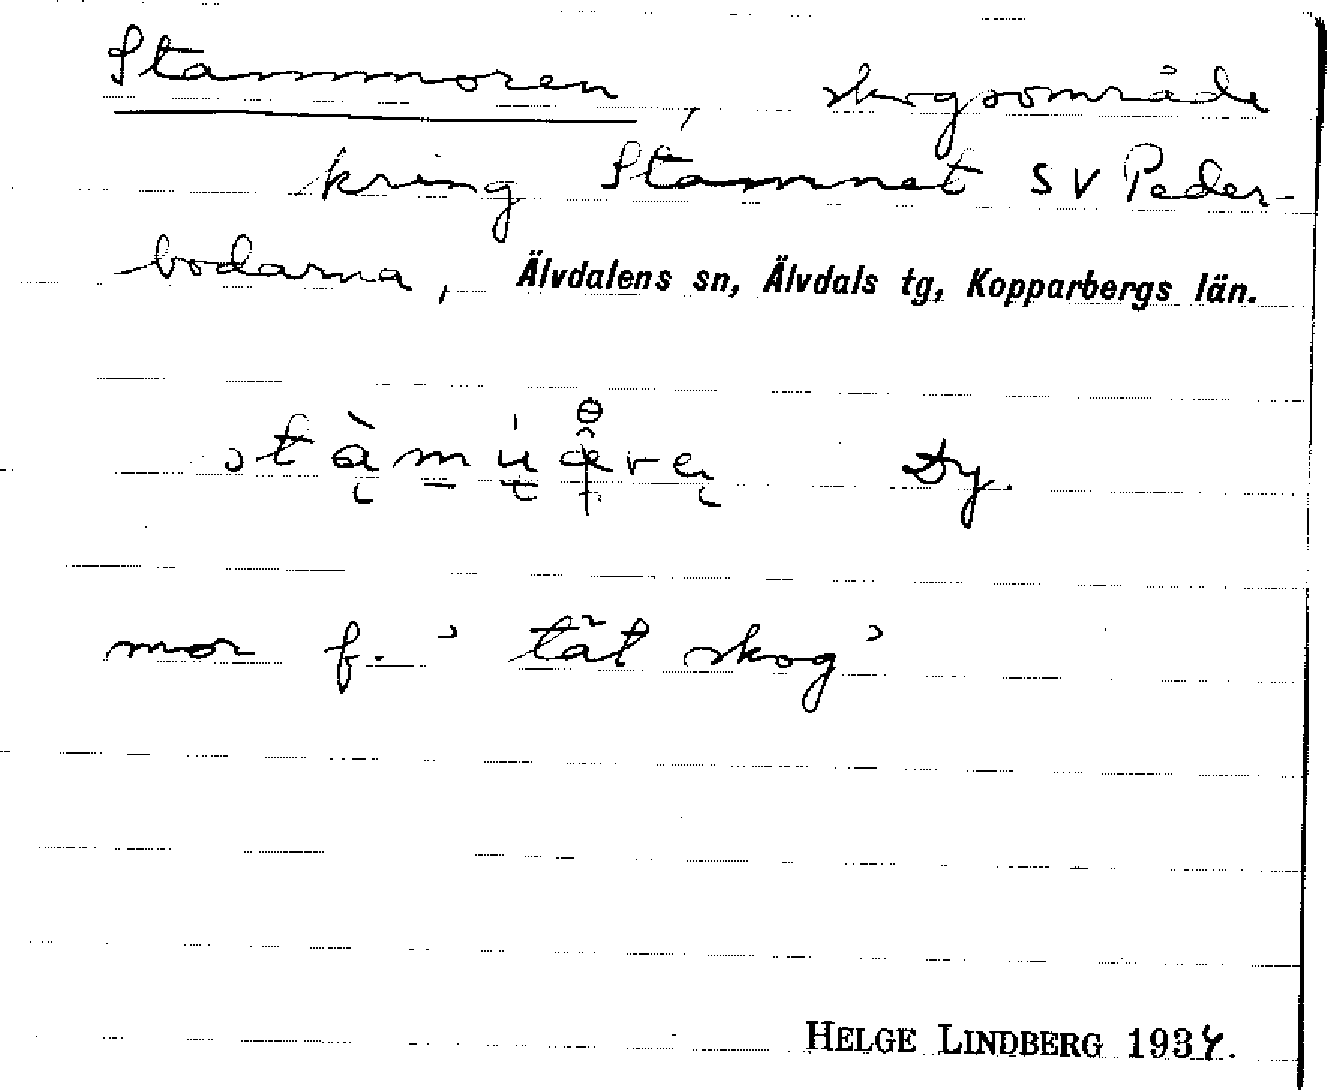 Stammoren, skogsområde
kring Stamnet SV Peder-
bodarna, Älvdalens sn, Älvdals tg, Kopparbergs län.
Dy.
mor f. ' tät skog '
HELGE LINDBERG 1934.